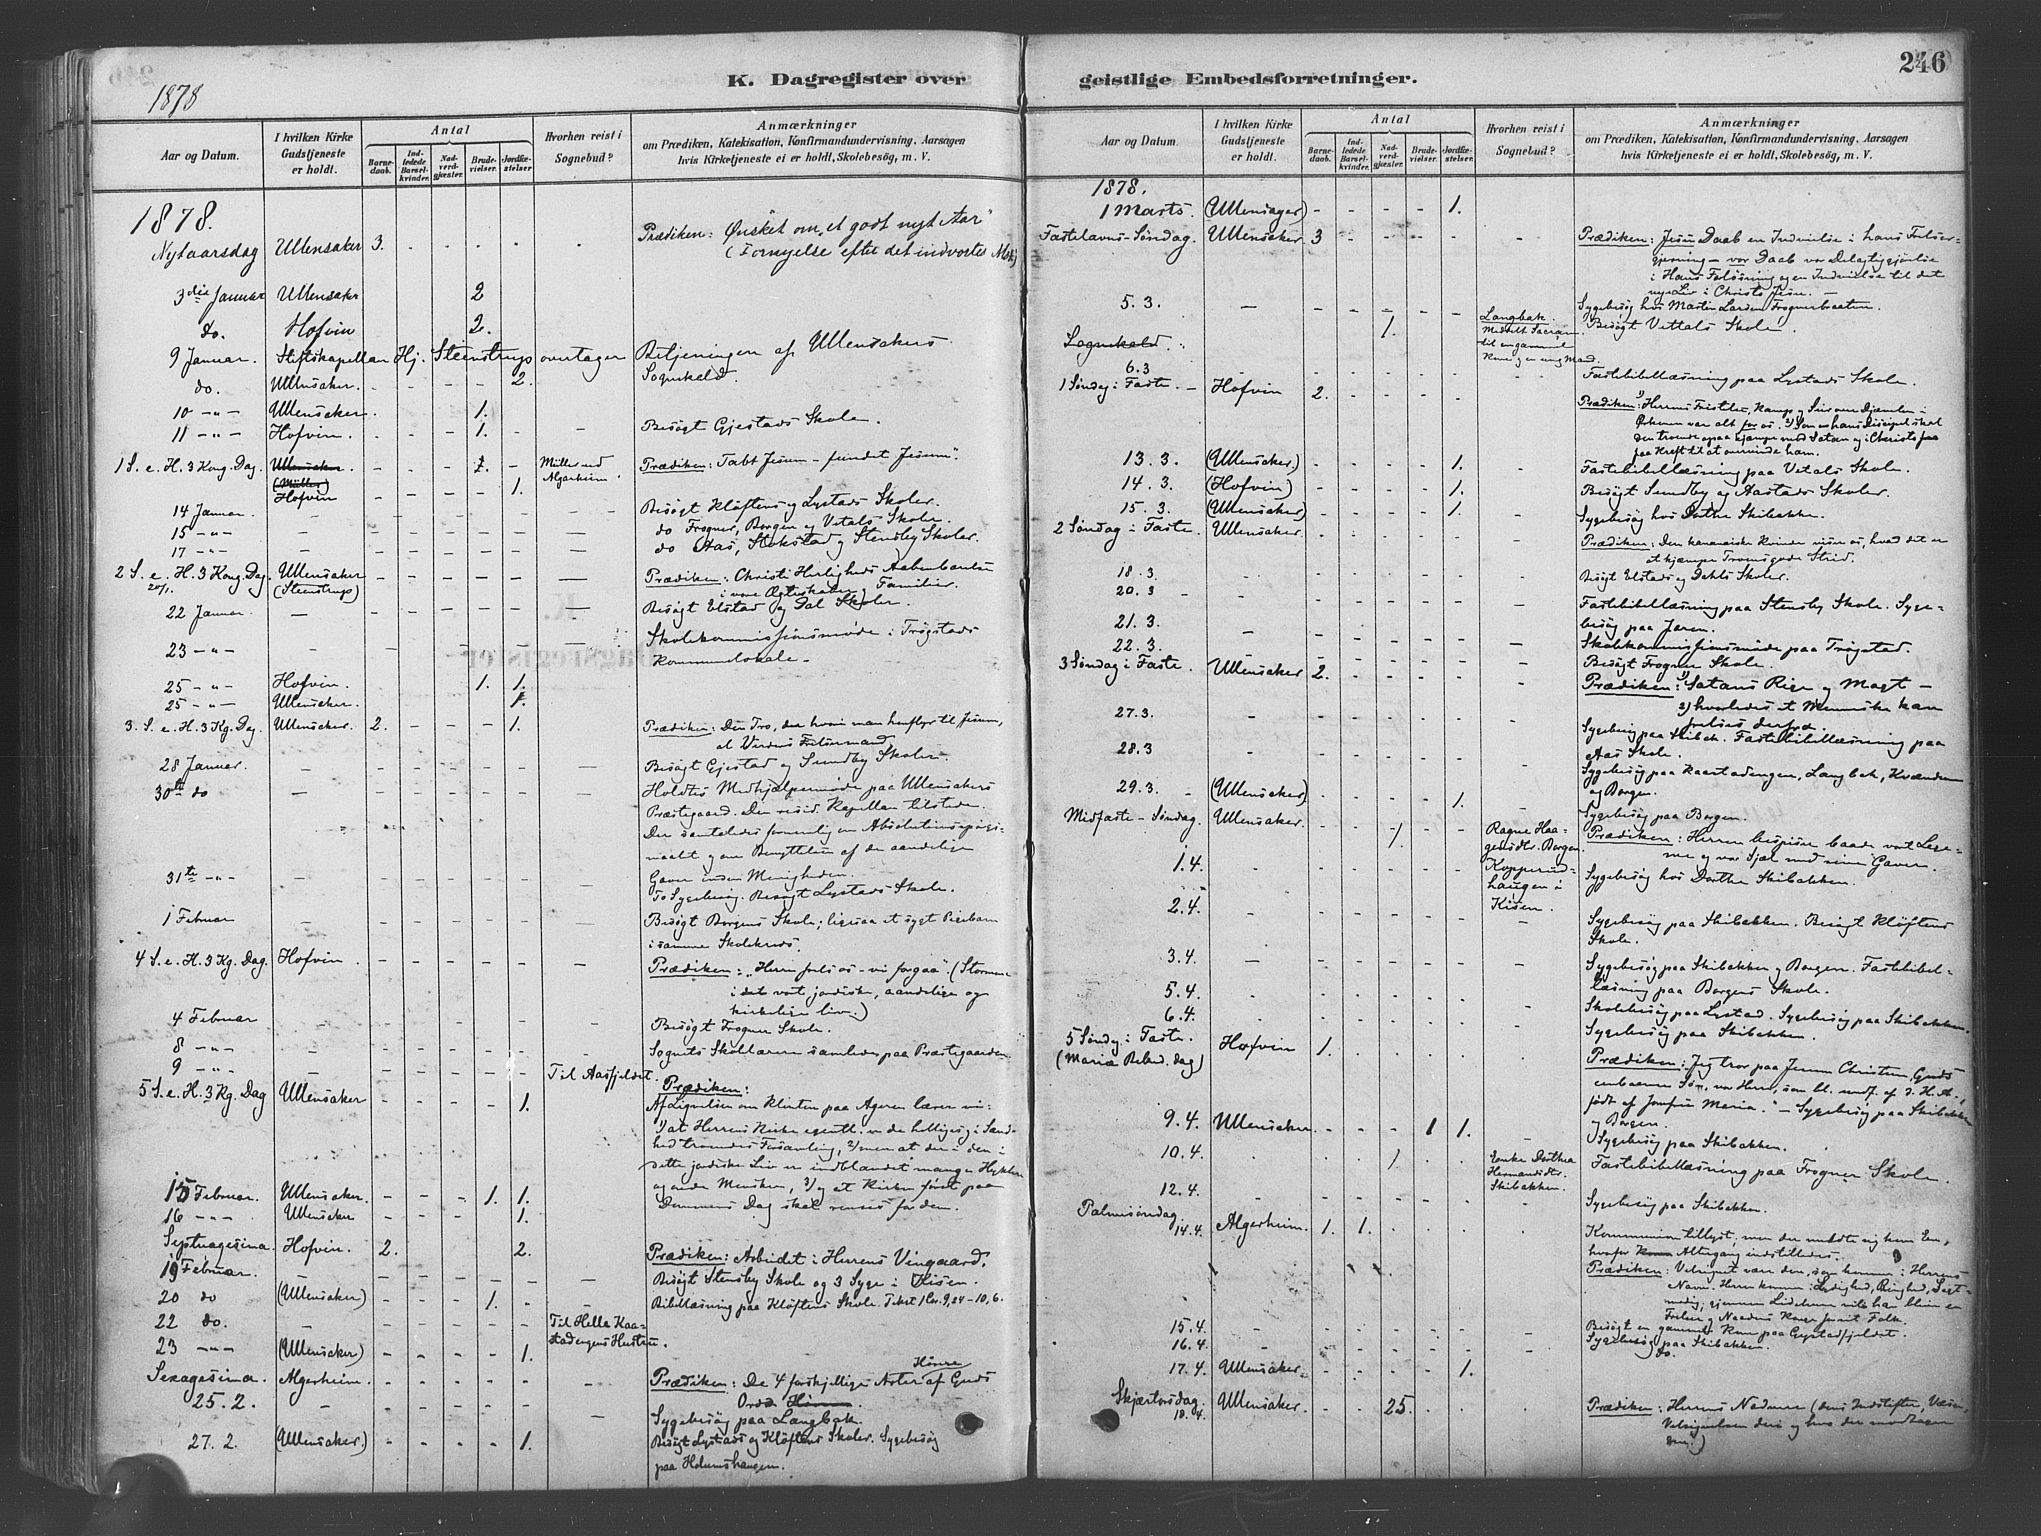 K. Dagregister over
1878
Aar og Datum.
I hvilken Kirke Gudstjeneste er holdt.
Antal
Barnedaab.
Indledede Barselkvinder.
Nadverdgjæster.
Brudevielser.
Jordfæstelser.
Hvorhen reist i Sognebud?
Anmærkninger
om Prædiken, Katekisation, Konfirmandundervisning, Aarsagen
hvis Kirketjeneste ei er holdt, Skolebesög, m. V.
1878.
Nytaarsdag Ullensaker 3. Prædiken: Ønsket om „et godt nyt Aar“
(Fornyelse efter det indvortes
3die Januar Ullensaker 2
do. Hofvin 2.
9 Januar. Stiftskapellan Hj. Steenstrup overtager Betjeningen af Ullensakers
Sognekald.
do. Ullensaker. 2.
10 -"- Ullensaker. 1.
11 -"- Hofvin. 1. Besögt Gjestads Skole.
1 S. e. H. 3 Kong. Dag. Ullensaker. 1. Müller ved Prædiken: Tabt Jesum - fundet Jesum“.
(Müller) Algarheim.
Hofvin 1.
14 Januar. Besögt Klöftens og Lystads Skoler.
15 -"- do Frogner, Borgen og Vetals Skoler.
17 -"- do Aas, Stokstad og Stensby Skoler.
2 S. e. H. 3 Kong. Dag. Ullensaker Prædiken: Christi Herligheds Aabenbarelse
20/1. (Steenstrup) i vore Ægteskaber, Familier.
22 Januar Besögt Elstad og Dal Skoler.
23 -"- Skolekommissionsmöde i Trögstads
Kommunelokale.
25 -"- Hofvin. 1. 1.
25 -"- Ullensaker. 1.
3. S. e. H. 3 Kg. Dag. Ullensaker. 2. 1. Prædiken: Den Tro, der hvori man henflyr til Jesum,
al Verdens Frelsermand.
28 Januar. Besögt Gjestad og Sundby Skoler.
30te do Holdtes Medhjælpermöde paa Ullensakers
Præstegaard. Den resid. Kapellan tilstede.
Der samtaledes fornemlig om Absolutionsspörgs-
maalet og om Benyttelsen af de aandelige
Gaver inden Menigheden.
31te -"- To Sygebesög. Besögt Lystads Skole.
1 Februar Besögt Borgens Skole; ligesaa et sygt Pigebarn
i samme Skolekreds.
4 S. e. H. 3 Kg. Dag. Hofvin. Prædiken: „Herre frels os - vi forgaa“. (Stormen
i det vort jordiske, aandelige og
kirkelige liv.)
4 Februar Besögt Frogner Skole.
8 -"- Sognets Skolelærere samledes paa Præstegaarden
9 -"- Til Aasfjeldet.
5 S. e. H. 3 Kg. Dag Ullensaker 1. Prædiken:
Af Lignelsen om Klinten paa Ageren lærer vi:
1) at Herrens Kirke egentl. er de helliges i Sand-
hed troendes Forsamling, 2) men at der i den i
dette jordiske Liv er indblandet mange Hyklere
og onde Mennesker, 3) og at Kirken först paa
Dommens Dag skal renses for dem.
15 Februar. Ullensaker. 1. 1.
16 -"- Ullensaker 1.
Septuagesima. Hofvin. 2. 2. Prædiken: Arbeidet i Herrens Vingaard.
19 Februar. Besögt Stensby Skole og 3 Syge i Kisen.
20 do (Ullensaker) 1. Bibellæsning paa Klöftens Skole. Tekst 1 Cor. 9,24-10,6.
22 do. Til Helle Kaa-
stadengens Hustru.
23 -"- (Ullensaker) 1.
Sexagesima. Algerheim. Prædiken: De 4 forskjellige Arter af Guds
Ords Hörere
25.2. Sygebesög paa Langbak.
27.2. (Ullensaker.) 1. Besögt Lystads og Klöftens Skoler. Sygebesög
paa Holumshaugen.
geistlige Embedsforretninger.
246
Aar og Datum.
I hvilken Kirke Gudstjeneste er holdt.
Antal
Barnedaab.
Indledede Barselkvinder.
Nadverdgjæster.
Brudevielser.
Jordfæstelser.
Hvorhen reist i Sognebud?
Anmærkninger
om Prædiken, Katekisation, Konfirmandundervisning, Aarsagen
hvis Kirketjeneste ei er holdt, Skolebesög, m. V.
1878.
1 Marts. (Ullensager) 1.
Fastelavns-Söndag. Ullensaker. 3 Prædiken: Jesu Daab en Indvielse i hans Frelser-
gjerning - vor Daab vor Delagtiggjörelse
i Hans Frelsning og en Indvielse til det
nye Liv i Christo Jesu.
5.3. Langbak. Sygebesög hos Martin Larsen Frognerbraaten.
1. Meddelt Sacram. Besögt Vettals Skole.
Sognekald. til en gammel
Kone og en ung Mand.
6.3 Fastebibellæsning paa Lystads Skole.
1 Söndag i Faste. Hofvin 2. Prædiken: 1) Herrens Fristelser, Kamp og Seir over Djævelen i
Örkenen var alt for os. 2) Som en hans Discipel skal
den troende ogsaa kjæmpe mod Satan og i Christo faa
faa Kraft til at overvinde ham.
13.3. (Ullensaker.) 1. Fastebibellæsning paa Vetals Skole.
14.3. (Hofvin) 1. Besögt Sundby og Aastads Skoler.
15.3. (Ullensaker) 1. Sygebesög hos Dorthe Skibakken.
2 Söndag i Faste. Ullensaker. Prædiken: Den kananæiske Kvinde viser os, hvad det er
at kjæmpe Troens gode Strid.
18.3. Besögt Elstads og Dahls Skoler.
20.3 Fastebibellæsning paa Stensby Skole. Syge-
21.3. besög paa Jaren.
22.3. Skolekommissionsmöde paa Trögstad.
Besögt Frogner Skole.
3 Söndag i Faste. Ullensaker 2. Prædiken: 1) Satans Rige og Magt -
2) hvorledes et Menneske kan
frelses derfra.
27.3. Sygebesög paa Skibak. Fastebibellæsning paa
Aas Skole.
28.3 Sygebesög paa Kaastadengen, Langbak, Kvænderen
29.3. (Ullensaker) 1. og Borgen.
Sygebesög paa Borgen.
Midfaste-Söndag. Ullensaker. 1. Ragne Haa- Prædiken: Herren bespiser baade vort Lege-
gensdtr. Borgen. me og vor Sjæl med sine Gaver.
1.4. Kopperud- Sygebesög hos Dorthe Skibakken.
haugen i
2.4. Kisen. Sygebesög paa Skibakken. Besögt Klöftens
Skole.
3.4. Sygebesög paa Skibakken og Borgen. Fastebibel-
læsning paa Borgens Skole.
5.4. Skolebesög paa Lystad. Sygebesög paa Skibakken.
6.4. Sygebesög paa Skibakken.
5 Söndag i Faste. Hofvin 1. Prædiken: Jeg tror paa Jesum Christum, Guds
(Mariæ Bebud. dag) enbaarne Sön, vor Herre, som bl. undf. af d. H. A.,
födt af Jomfru Maria.“ - Sygebesög paa Skibakken
og Borgen.
9.4. Ullensaker. 1 1. Sygebesög paa Skibakken.
10.4. 1 Enke Dorthea Fastebibellæsning paa Frogner Skole.
Hermansdtr.
12.4. Skibakken. Sygebesög paa Skibakken.
Palmesöndag 14.4. Algerheim. 1. 1. Kommunion tillyst, men der meldte sig kun Een,
hvorfor Altergang indstilledes.
Prædiken: Velsignet være den, som kommer i Herrens
Navn. Herren kommer i Lydighed, Ringhed, Sagt-
modig; gjennem Lidelserne vilde han blive en
Frelser og Naadens Konge for sit Folk.
15.4. Besögt en gammel Kone paa Gjestadfjeldet.
16.4. Sygebesög paa Skibakken.
17.4. Ullensaker. 1. do.
Skjærtorsdag. 18.4. Ullensaker. 25. Prædiken: Herrens Nadver (dens Indstifter, Væsen,
Velsignelsen deri og hvo der modtager
den.)